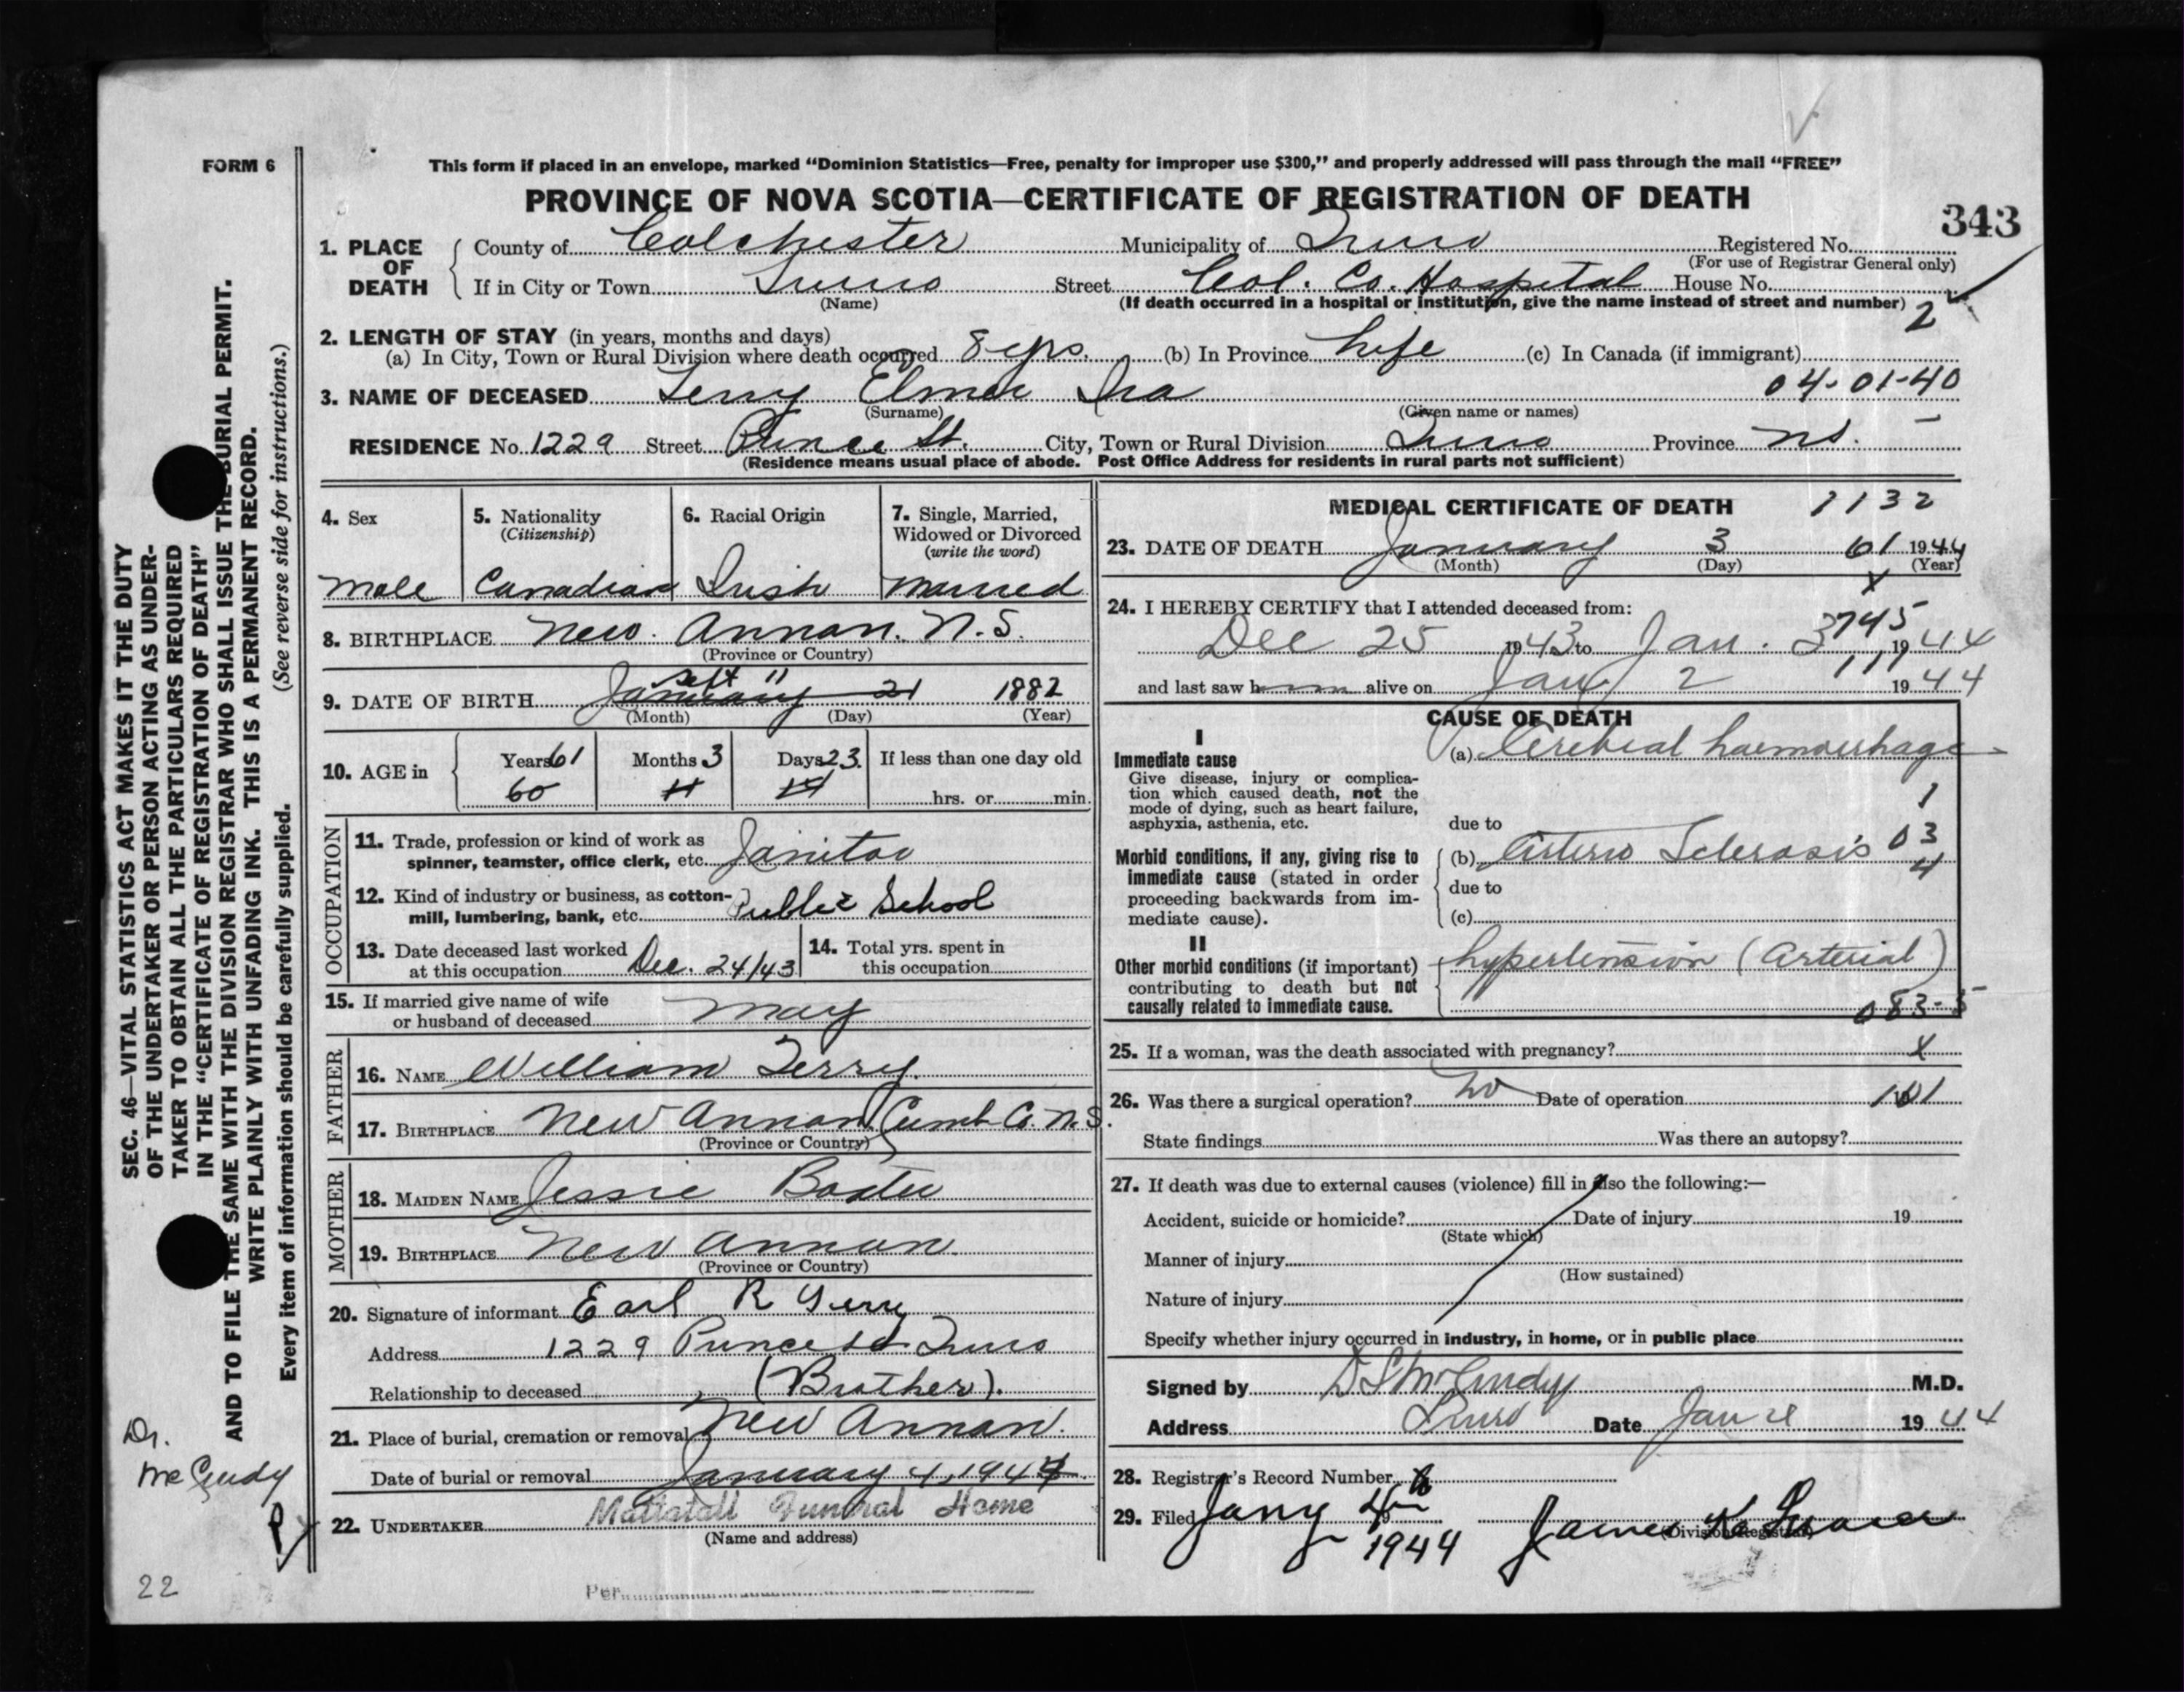 FORM 6
This form if placed in an envelope, marked “Dominion Statistics—Free, penalty for improper use $300,” and properly addressed will pass through the mail “FREE”
PROVINCE OF NOVA SCOTIA—CERTIFICATE OF REGISTRATION OF DEATH
343
1. PLACE OF DEATH
County of Colchester Municipality of Truro Registered No.
(For use of Registrar General only)
If in City or Town Truro Street Col. Co. Hospital House No.
(Name) (If death occurred in a hospital or institution, give the name instead of street and number) 2
2. LENGTH OF STAY (in years, months and days)
(a) In City, Town or Rural Division where death occurred 8 yrs. (b) In Province Life (c) In Canada (if immigrant)
04-01-40
3. NAME OF DECEASED Terry Elmer Ira
(Surname) (Given name or names)
RESIDENCE No. 1229 Street Prince St. City, Town or Rural Division Truro Province N.S.
(Residence means usual place of abode. Post Office Address for residents in rural parts not sufficient)
4. Sex
Male
5. Nationality
(Citizenship)
Canadian
6. Racial Origin
Irish
7. Single, Married,
Widowed or Divorced
(write the word)
Married
8. BIRTHPLACE New Annan. N.S.
(Province or Country)
Sept 11
9. DATE OF BIRTH January 21 1882
(Month) (Day) (Year)
10. AGE in
Years 61 Months 3 Days 23. If less than one day old
60 11 hrs. or min.
OCCUPATION
11. Trade, profession or kind of work as
spinner, teamster, office clerk, etc. Janitor
12. Kind of industry or business, as cotton-
mill, lumbering, bank, etc. Public School
13. Date deceased last worked
at this occupation Dec. 24/43
14. Total yrs. spent in
this occupation
15. If married give name of wife
or husband of deceased May
FATHER
16. NAME William Terry.
17. BIRTHPLACE New Annan Cumb. Co. N.S.
(Province or Country)
MOTHER
18. MAIDEN NAME Jessie
19. BIRTHPLACE New Annan.
(Province or Country)
20. Signature of informant Earl R Terry
Address 1229 Prince St. Truro
Relationship to deceased (Brother).
21. Place of burial, cremation or removal New Annan.
Date of burial or removal January 4, 1944
22. UNDERTAKER Mattatall Funeral Home
(Name and address)
Per
MEDICAL CERTIFICATE OF DEATH 1132
23. DATE OF DEATH January 3 61 1944
(Month) (Day) (Year)
X
24. I HEREBY CERTIFY that I attended deceased from:
745
Dec 25 1943 to Jan. 3 1944
111
and last saw him alive on Jan 2 1944
CAUSE OF DEATH
I
Immediate cause
Give disease, injury or complica-
tion which caused death, not the
mode of dying, such as heart failure,
asphyxia, asthenia, etc.
(a) Cerebral haemorrhage
1
due to
Morbid conditions, if any, giving rise to
immediate cause (stated in order
proceeding backwards from im-
mediate cause).
(b) Arterio Sclerosis 03
4
due to
(c)
II
Other morbid conditions (if important)
contributing to death but not
causally related to immediate cause.
hypertension (Arterial)
083-5
25. If a woman, was the death associated with pregnancy? X
26. Was there a surgical operation? No Date of operation 101
State findings Was there an autopsy?
27. If death was due to external causes (violence) fill in also the following:—
Accident, suicide or homicide? Date of injury 19
(State which)
Manner of injury
(How sustained)
Nature of injury
Specify whether injury occurred in industry, in home, or in public place
Signed by McCurdy M.D.
Address Truro Date Jan 4 1944
28. Registrar's Record Number
29. Filed Jany 4th 1944 James
(Division Registrar)
SEC. 46—VITAL STATISTICS ACT MAKES IT THE DUTY
OF THE UNDERTAKER OR PERSON ACTING AS UNDER-
TAKER TO OBTAIN ALL THE PARTICULARS REQUIRED
IN THE “CERTIFICATE OF REGISTRATION OF DEATH”
AND TO FILE THE SAME WITH THE DIVISION REGISTRAR WHO SHALL ISSUE THE BURIAL PERMIT.
WRITE PLAINLY WITH UNFADING INK. THIS IS A PERMANENT RECORD.
Every item of information should be carefully supplied. (See reverse side for instructions.)
Dr.
McCurdy
22